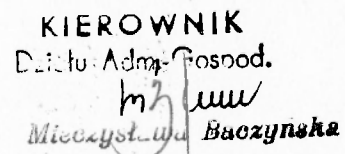 KIEROWNIK
Działu Adm.-Gospod.
Mieczysława Baczyńska